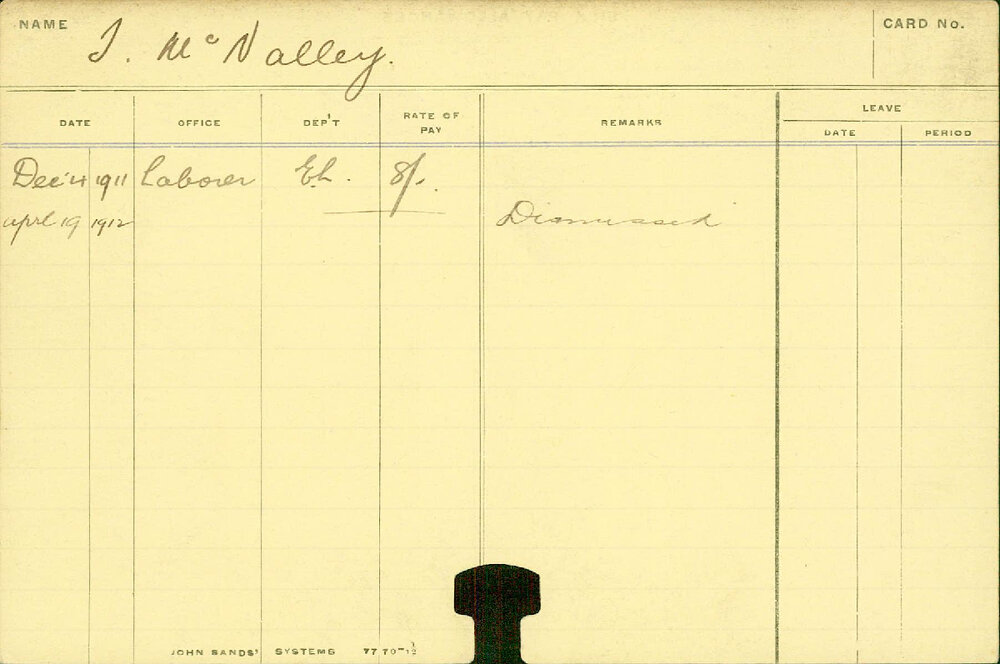 NAME J. McNalley. CARD No.
DATE OFFICE DEP'T RATE OF PAY REMARKS LEAVE
DATE PERIOD
Dec 4 1911 Laborer E.L. 8/-.
April 19 1912 Dismissed
JOHN SANDS' SYSTEMS